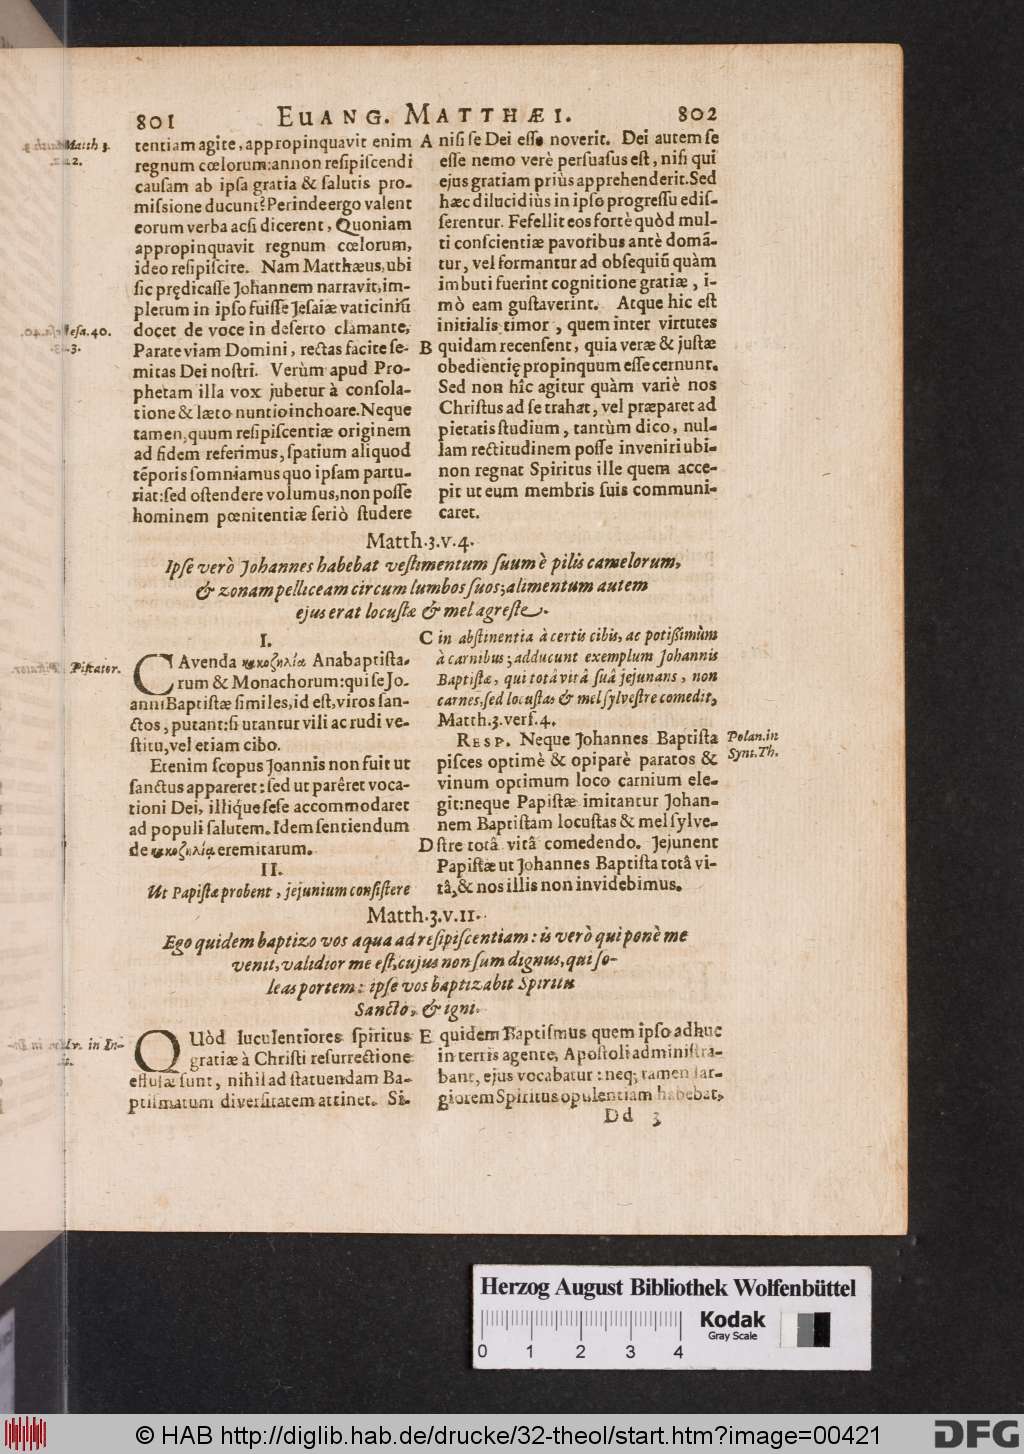 801 EUANG. MATTHÆI. 802
Matth 3.
v. 2.
tentiam agite, appropinquavit enim
regnum cœlorum: annon resipiscendi
causam ab ipsa gratia & salutis pro-
missione ducunt? Perinde ergo valent
eorum verba acsi dicerent, Quoniam
appropinquavit regnum cœlorum,
ideo resipiscite. Nam Matthæus, ubi
sic prędicasse Johannem narravit, im-
pletum in ipso fuisse Jesaiæ vaticiniũ
docet de voce in deserto clamante,
Parate viam Domini, rectas facite se-
mitas Dei nostri. Verùm apud Pro-
phetam illa vox jubetur à consola-
tione & læto nuntio inchoare. Neque
tamen, quum resipiscentiæ originem
ad fidem referimus, spatium aliquod
tẽporis somniamus quo ipsam partu-
riat: sed ostendere volumus, non posse
hominem pœnitentiæ seriò studere
Jesa. 40.
v. 3.
A nisi se Dei esse noverit. Dei autem se
esse nemo verè persuasus est, nisi qui
ejus gratiam priùs apprehenderit. Sed
hæc dilucidiùs in ipso progressu edis-
serentur. Fefellit eos fortè quòd mul-
ti conscientiæ pavoribus antè domã-
tur, vel formantur ad obsequiũ quàm
imbuti fuerint cognitione gratiæ, i-
mò eam gustaverint. Atque hic est
initialis timor, quem inter virtutes
B quidam recensent, quia veræ & justæ
obedientię propinquum esse cernunt.
Sed non hîc agitur quàm variè nos
Christus ad se trahat, vel præparet ad
pietatis studium, tantùm dico, nul-
lam rectitudinem posse inveniri ubi-
non regnat Spiritus ille quem acce-
pit ut eum membris suis communi-
caret.
Matth. 3. v. 4.
Ipse verò Johannes habebat vestimentum suum è pilis camelorum,
& zonam pelliceam circum lumbos suos; alimentum autem
ejus erat locustæ & mel agreste.
I.
Piscator.
CAvenda κακοζηλία Anabaptista-
rum & Monachorum: qui se Jo-
anni Baptistæ similes, id est, viros san-
ctos, putant: si utantur vili ac rudi ve-
stitu, vel etiam cibo.
Etenim scopus Joannis non fuit ut
sanctus appareret: sed ut parêret voca-
tioni Dei, illiq́ue sese accommodaret
ad populi salutem. Idem sentiendum
de κακοζηλίᾳ eremitarum.
II.
Ut Papistæ probent, jejunium consistere
C in abstinentia à certis cibis, ac potißimùm
à carnibus; adducunt exemplum Johannis
Baptistæ, qui totâ vitâ suâ jejunans, non
carnes, sed locustas & mel sylvestre comedit,
Matth. 3. vers. 4.
RESP. Neque Johannes Baptista
pisces optimè & opiparè paratos &
vinum optimum loco carnium ele-
git: neque Papistæ imitantur Johan-
nem Baptistam locustas & mel sylve-
D stre totâ vitâ comedendo. Jejunent
Papistæ ut Johannes Baptista totâ vi-
tâ, & nos illis non invidebimus.
Polan. in
Synt. Th.
Matth. 3. v. 11.
Ego quidem baptizo vos aqua ad resipiscentiam: is verò qui ponè me
venit, validior me est, cujus non sum dignus, qui so-
leas portem: ipse vos baptizabit Spiritu
Sancto, & igni.
in In-
QUòd luculentiores spiritus
gratiæ à Christi resurrectione
effusæ sunt, nihil ad statuendam Ba-
ptismatum diversitatem attinet. Si-
E quidem Baptismus quem ipso adhuc
in terris agente, Apostoli administra-
bant, ejus vocabatur: neq; tamen lar-
giorem Spiritus opulentiam habebat,
Dd 3
Herzog August Bibliothek Wolfenbüttel
Kodak
Gray Scale
0 1 2 3 4
© HAB http://diglib.hab.de/drucke/32-theol/start.htm?image=00421
DFG